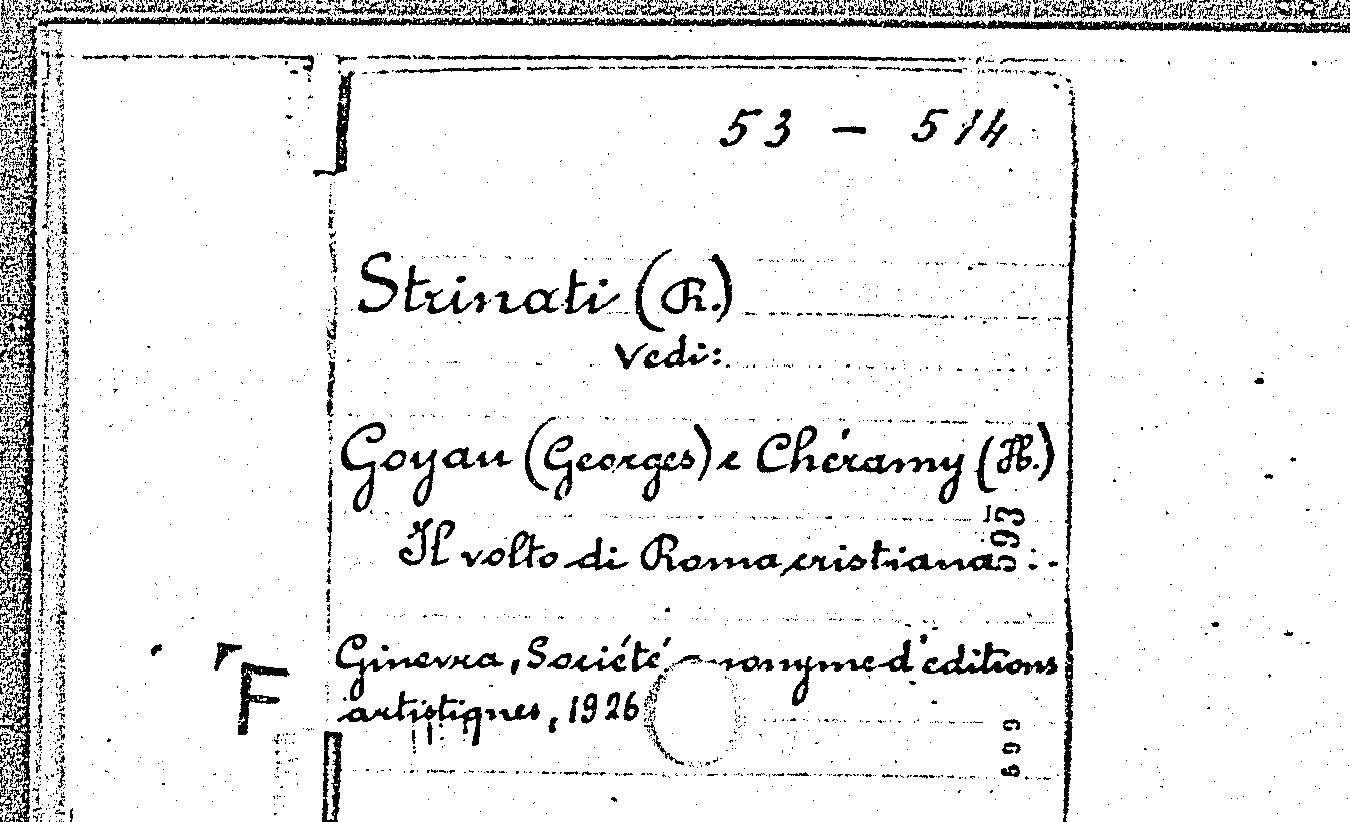 53 - 514
Strinati (R.)
Vedi:
Goyau (Georges) e Chéramy (H.)
Il volto di Roma cristiana :-
593
Ginevra, Société anonyme d'éditions
artistiques, 1926
F
599